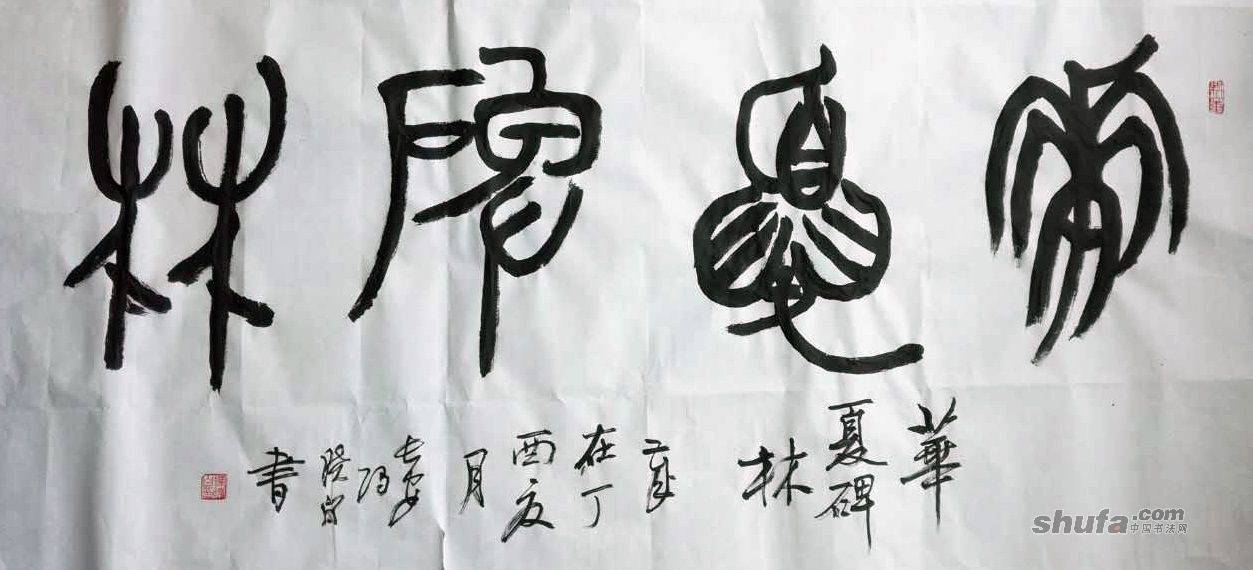 華夏碑林
華
夏碑
林
歲
在丁
酉夏
月
長安
馮
書
shufa.com
中国书法网